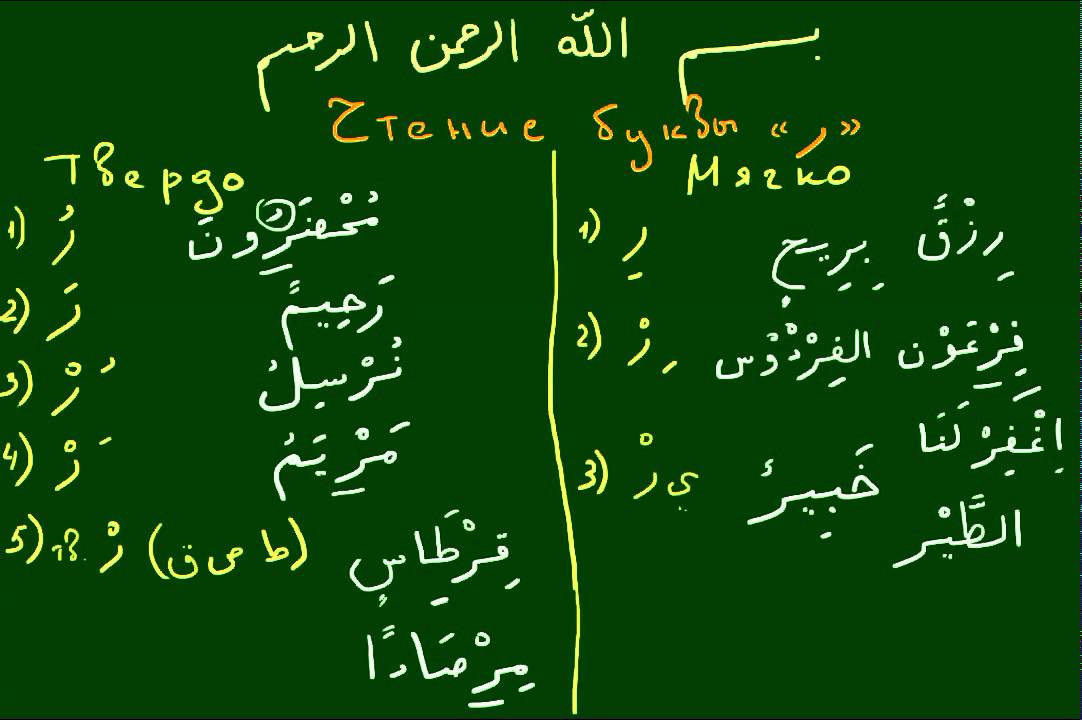 بسم الله الرحمن الرحيم
Чтение буквы «ر»
Твердо
1) رُ مُحْضَرُونَ
2) رَ رَحِيمٌ
3) ُ رْ نُرْسِلُ
4) َ رْ مَرْيَمُ
5) رْ (ط ص ق) قِرْطَاسٍ
مِرْصَادًا
Мягко
1) رِ رِزْقً بِرِيحٍ
2) ِ رْ فِرْعَوْن الفِرْدَوْس
اِغْفِرْ لَنَا
3) ي رْ خَبِيرُ
الطَّيْر